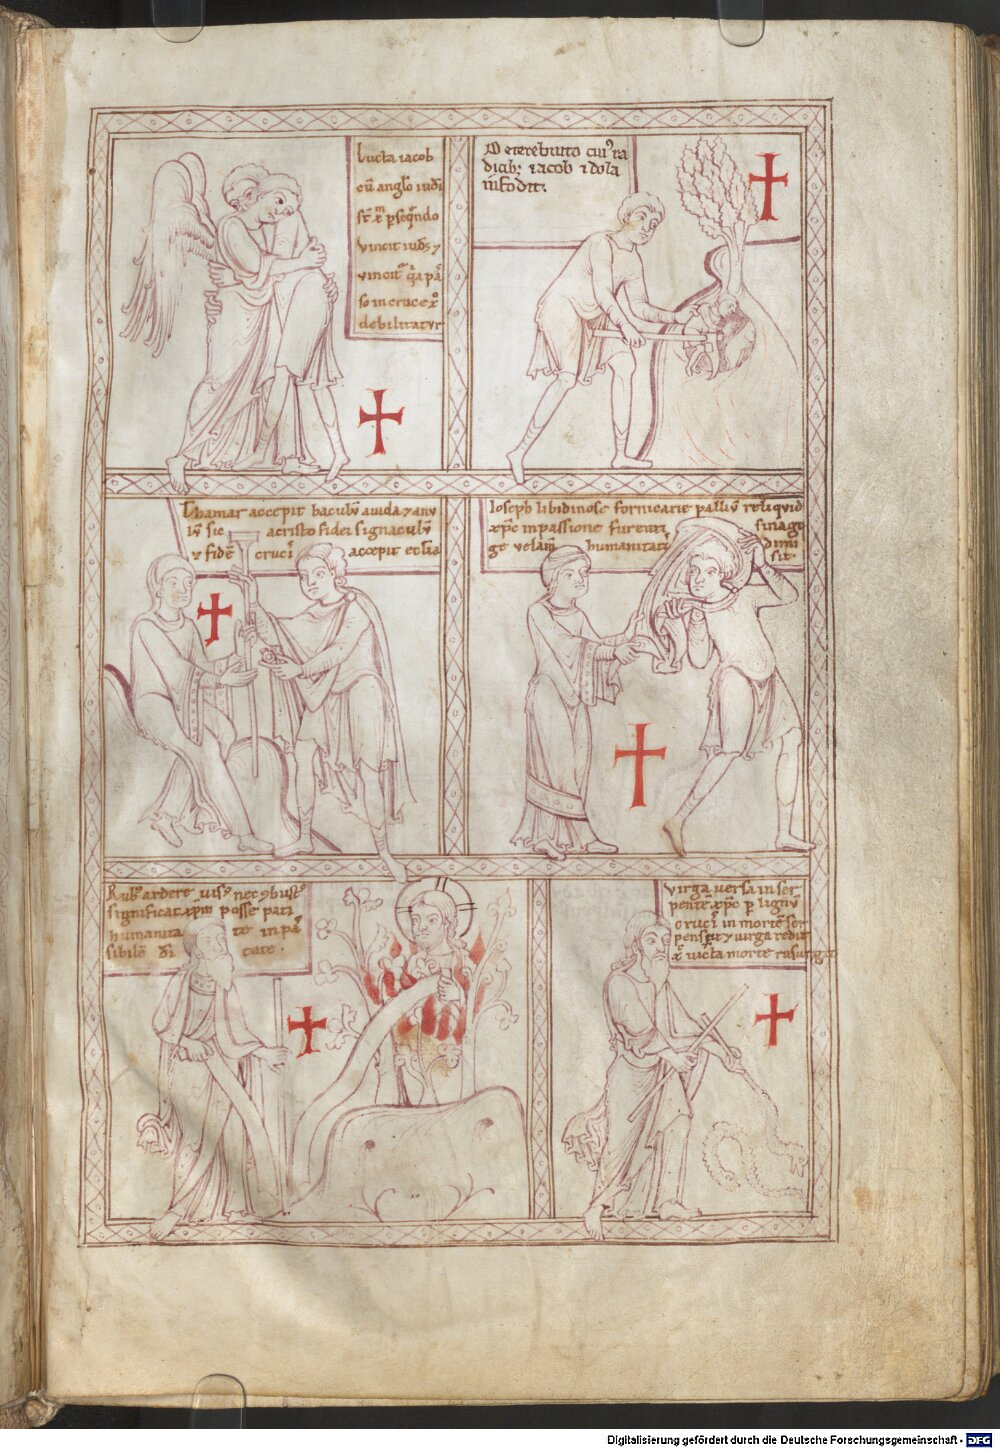 Lucta iacob
cū anglo iudī
st̄ xm̄ p̄seq̄ndo
vincit iuds 7
vincit' q̄a pā
so in cruce xp̄
debilitatur
D e terebinto cui' ra
dicib; iacob idola
infodit.
Thamar accepit baculū auida 7 anu
lū sic a cristo fidei signaculū
7 fidē cruci' accepit ecl̄ia
Ioseph libidinose fornicarie palliū reliquid
xp̄c in passione furenti sinago
ge velam̄ humanitati' dimi
sit
Rub' ardere uis' nec 9bust'
significat xp̄m posse pati
humanita te in pa
sibilē dī tate.
virga versa in ser
pentē xp̄c p lignū
cruci' in mortē ser
pens 7 uirga redit
xp̄ uicta morte rusurgit
Digitalisierung gefördert durch die Deutsche Forschungsgemeinschaft - DFG